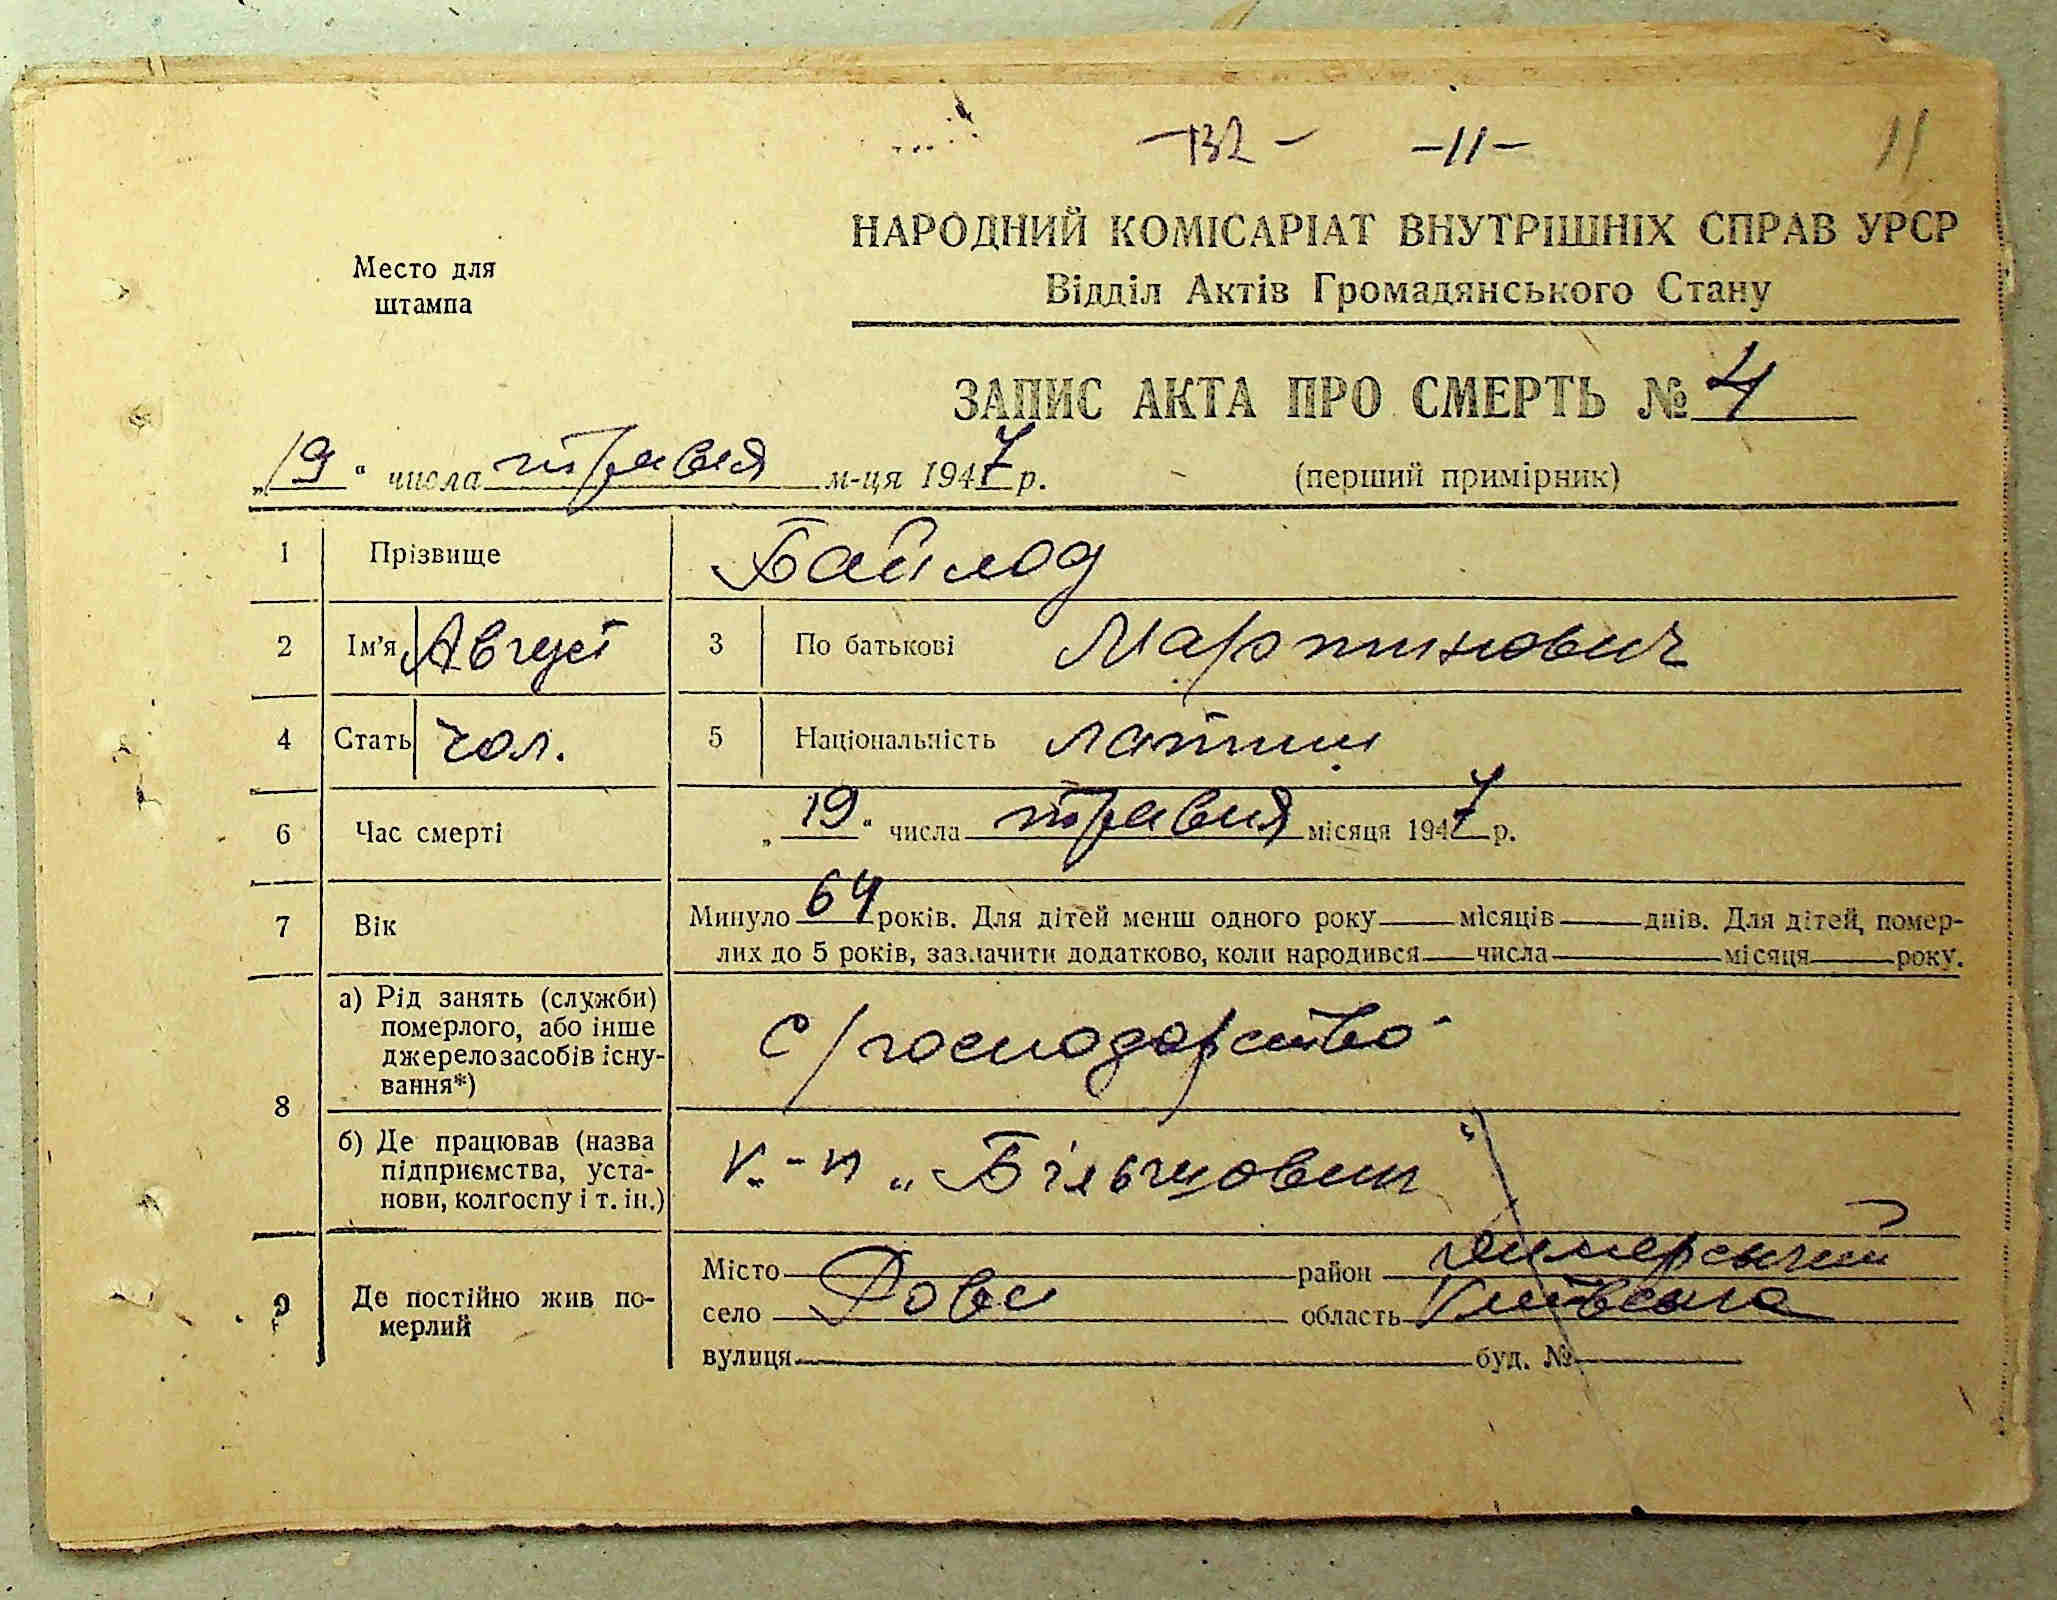 -132- -11- 11
НАРОДНИЙ КОМІСАРІАТ ВНУТРІШНІХ СПРАВ УРСР
Відділ Актів Громадянського Стану
Место для
штампа
ЗАПИС АКТА ПРО СМЕРТЬ № 4
„19“ числа травня м-ця 1947 р.
(перший примірник)
1 Прізвище Байлод
2 Ім'я Август 3 По батькові Мартинович
4 Стать чол. 5 Національність латиш
6 Час смерті „19“ числа травня місяця 1947 р.
7 Вік Минуло 64 років. Для дітей менш одного року місяців днів. Для дітей, помер-
лих до 5 років, зазначити додатково, коли народився числа місяця року.
8 а) Рід занять (служби)
померлого, або інше
джерело засобів існу-
вання*)
с/господарство
б) Де працював (назва
підприємства, уста-
нови, колгоспу і т. ін.)
к-п „Більшовик“
9 Де постійно жив по-
мерлий
Місто район Димерський
село область Київська
вулиця буд. №